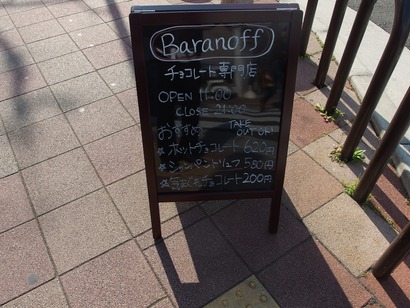 Baranoff
チョコレート専門店
OPEN 11:00
CLOSE 21:00
おすすめ TAKE OUT OK!
★ホットチョコレート 620円
★シャンパントリュフ 580円
チョコレート200円